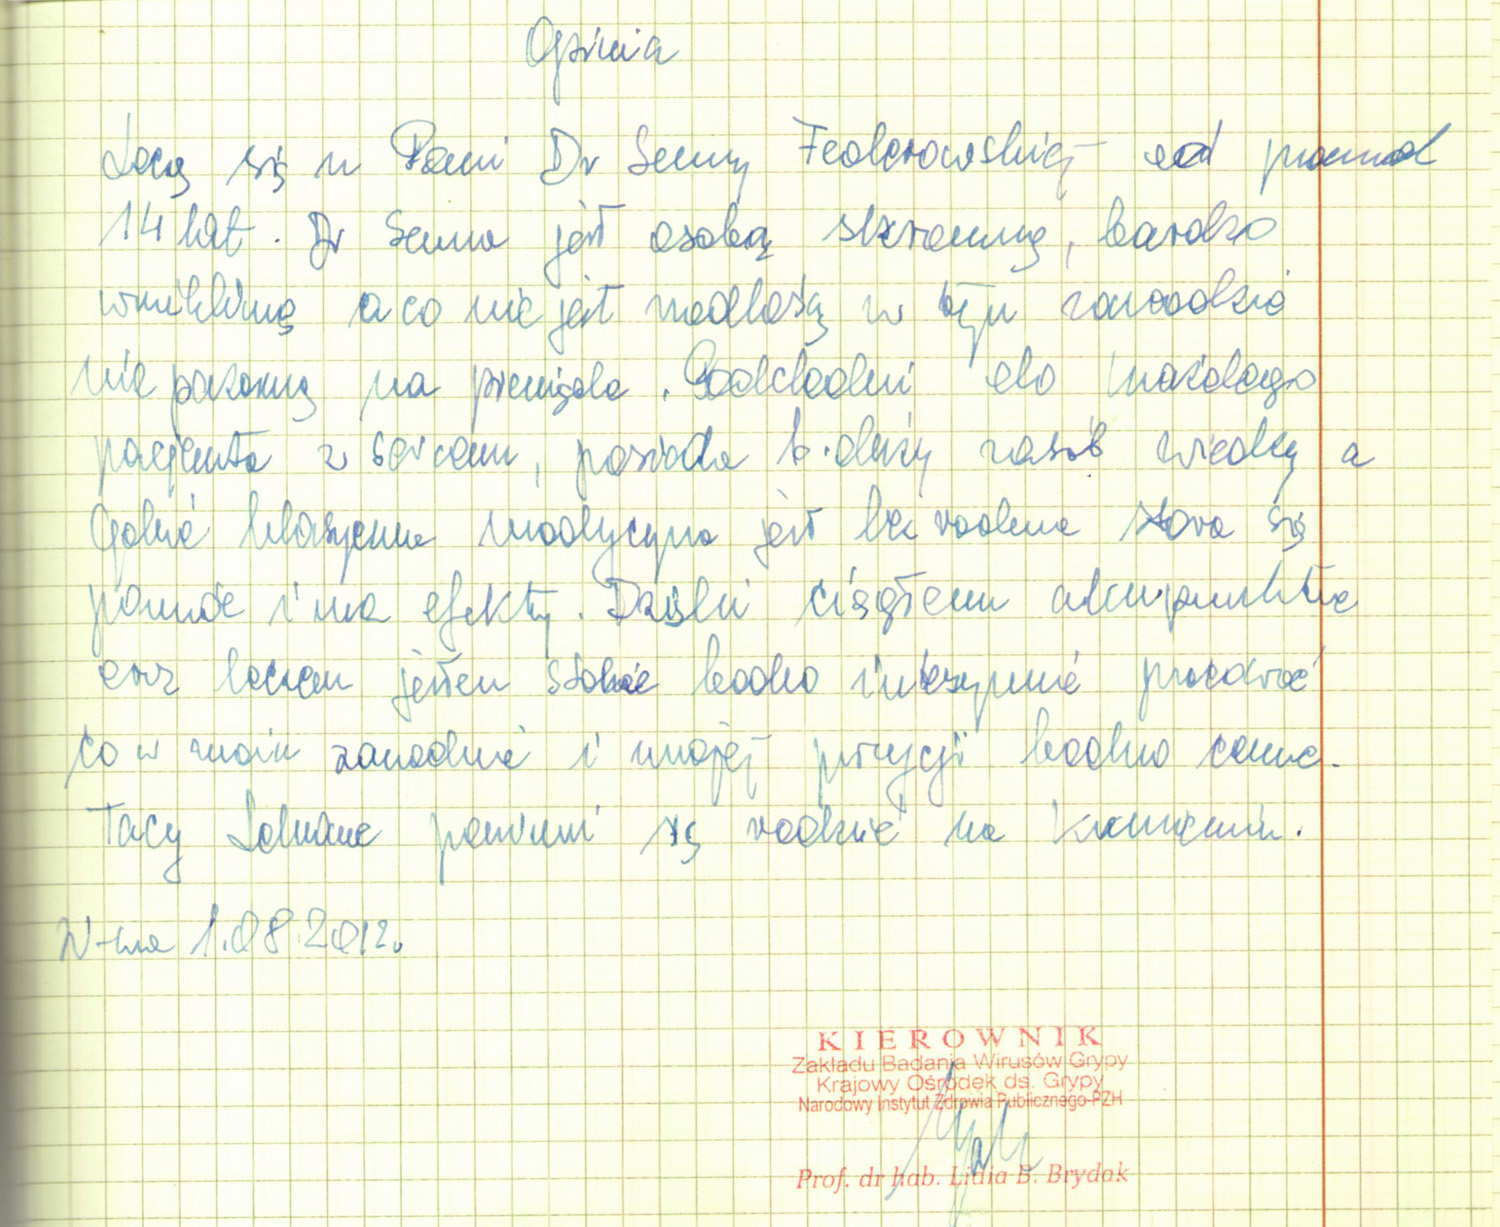 Opinia
Leczę się u Pani Dr Senny Fedorowskiej od ponad
14 lat. Dr Senna jest osobą skromną, bardzo
wnikliwą a co nie jest modłością w tym zawodzie
nie pazerną na pieniądze. Podchodzi do każdego
pacjenta z sercem, posiada b. duży zasób wiedzy a
Gdzie klasyczna medycyna jest bezradna stara się
pomóc i ma efekty. Dzięki ciągłem akupunkturze
oraz jestem stanie bardzo intensywnie pracować
co w moim zawodzie i mojej pozycji bardzo cenne.
Tacy Lekarze powinni się rodzić na kamieniu.
W-wa 1.08.2012.
KIEROWNIK
Zakładu Badania Wirusów Grypy
Krajowy Ośrodek ds. Grypy
Narodowy Instytut Zdrowia Publicznego-PZH
Prof. dr hab. Lidia B. Brydak